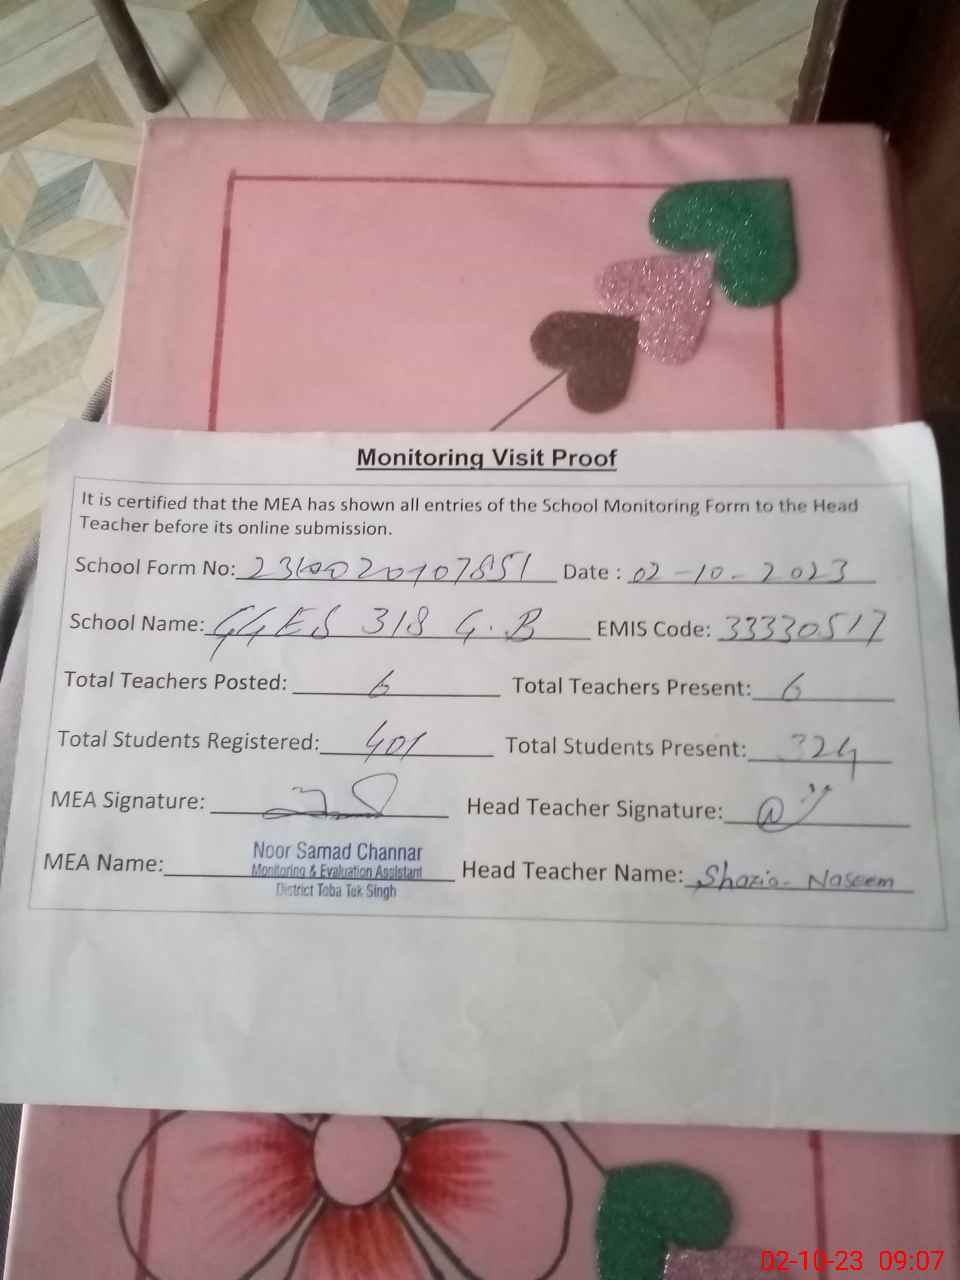 Monitoring Visit Proof
It is certified that the MEA has shown all entries of the School Monitoring Form to the Head
Teacher before its online submission.
School Form No: Date : 02-10-2023
School Name: GGES 318 G.B EMIS Code: 33330517
Total Teachers Posted: 6 Total Teachers Present: 6
Total Students Registered: 401 Total Students Present: 324
MEA Signature: Head Teacher Signature:
MEA Name: Noor Samad Channar Head Teacher Name: Shazia Naseem
Monitoring & Evaluation Assistant
District Toba Tek Singh
02-10-23 09:07